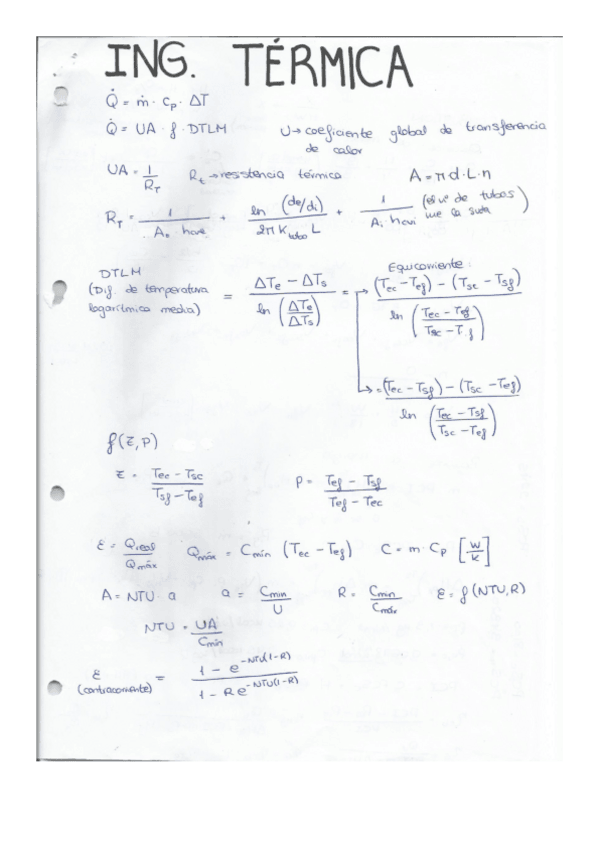 ING. TÉRMICA
Q̇ = ṁ · Cp · ΔT
Q̇ = UA · f · DTLM U → coeficiente global de transferencia
de calor
UA = 1/R_T R_t → resistencia térmica A = π d · L · n
R_T = 1/(A_o · h_ave) + ln (de/di)/(2π K_tubo L) + 1/(A_i · h_avi) (el nº de tubos
DTLM
(Dif. de temperatura
logarítmica media) = (ΔTe − ΔTs)/(ln (ΔTe/ΔTs)) =
Equicorriente:
→ ((Tec − Tef) − (Tsc − Tsf))/(ln ((Tec − Tef)/(Tsc − T.f)))
→ = ((Tec − Tsf) − (Tsc − Tef))/(ln ((Tec − Tsf)/(Tsc − Tef)))
f(Z, P)
Z = (Tec − Tsc)/(Tsf − Tef) P = (Tef − Tsf)/(Tef − Tec)
ε = Qreal/Qmáx Qmáx = Cmín (Tec − Tef) C = m · Cp [W/K]
A = NTU · a a = Cmin/U R = Cmin/Cmáx ε = f(NTU, R)
NTU = UA/Cmín
ε (contracorriente) = (1 − e^−NTU(1−R))/(1 − Re^−NTU(1−R))